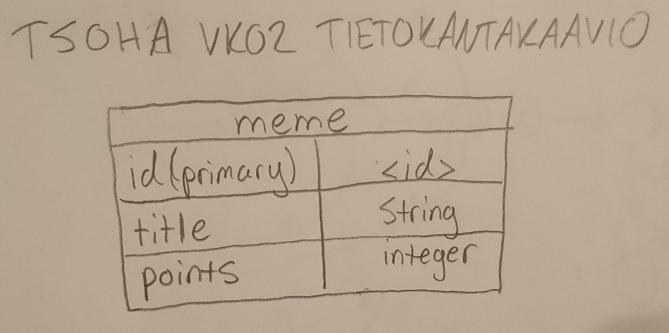 TSOHA VK02 TIETOKANTAKAAVIO
meme
id(primary) <id>
title String
points integer